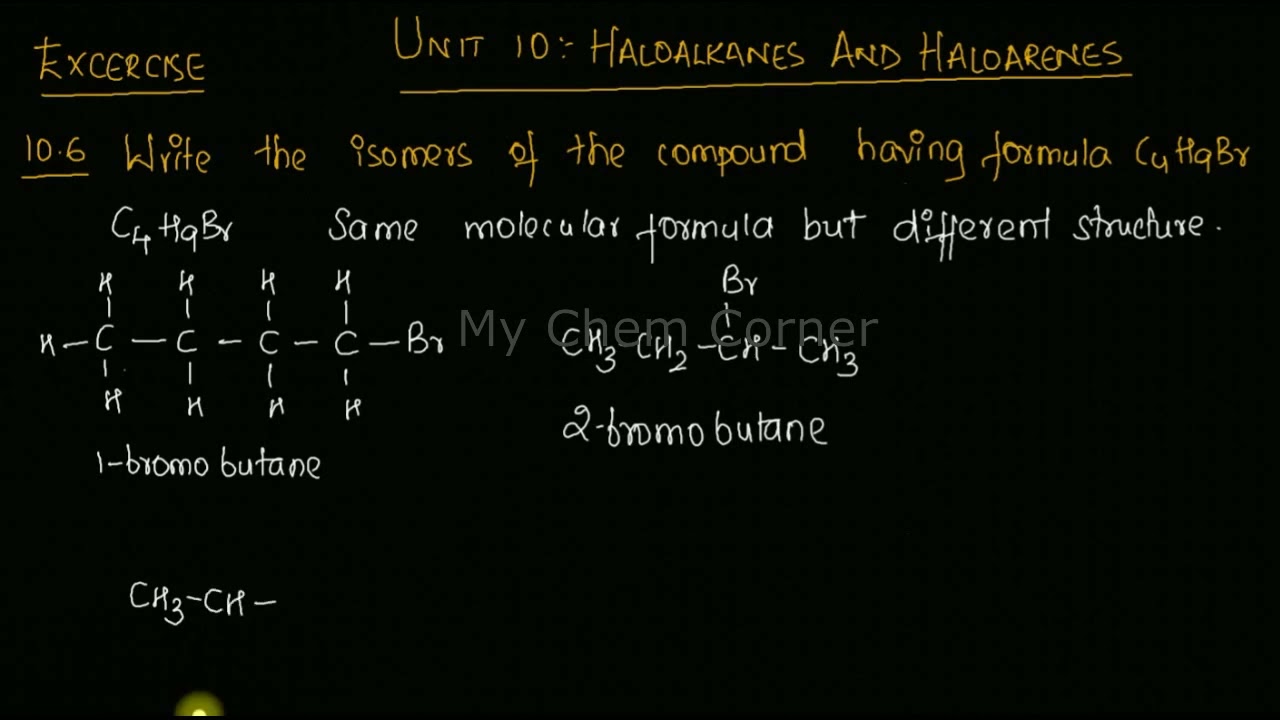 EXCERCISE
UNIT 10:- HALOALKANES AND HALOARENES
10.6 Write the isomers of the compound having formula C4H9Br
C4H9Br Same molecular formula but different structure.
H H H H
H-C-C-C-C-Br
H H H H
1-bromo butane
Br
CH3 CH2-CH-CH3
2-bromo butane
My Chem Corner
CH3-CH-